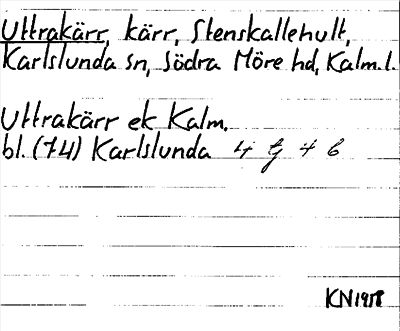 Uttrakärr, kärr, Stenskallehult,
Karlslunda sn, Södra Möre hd, Kalm.l.
Uttrakärr ek Kalm.
bl. (74) Karlslunda 4 g 7 b
KN 1958